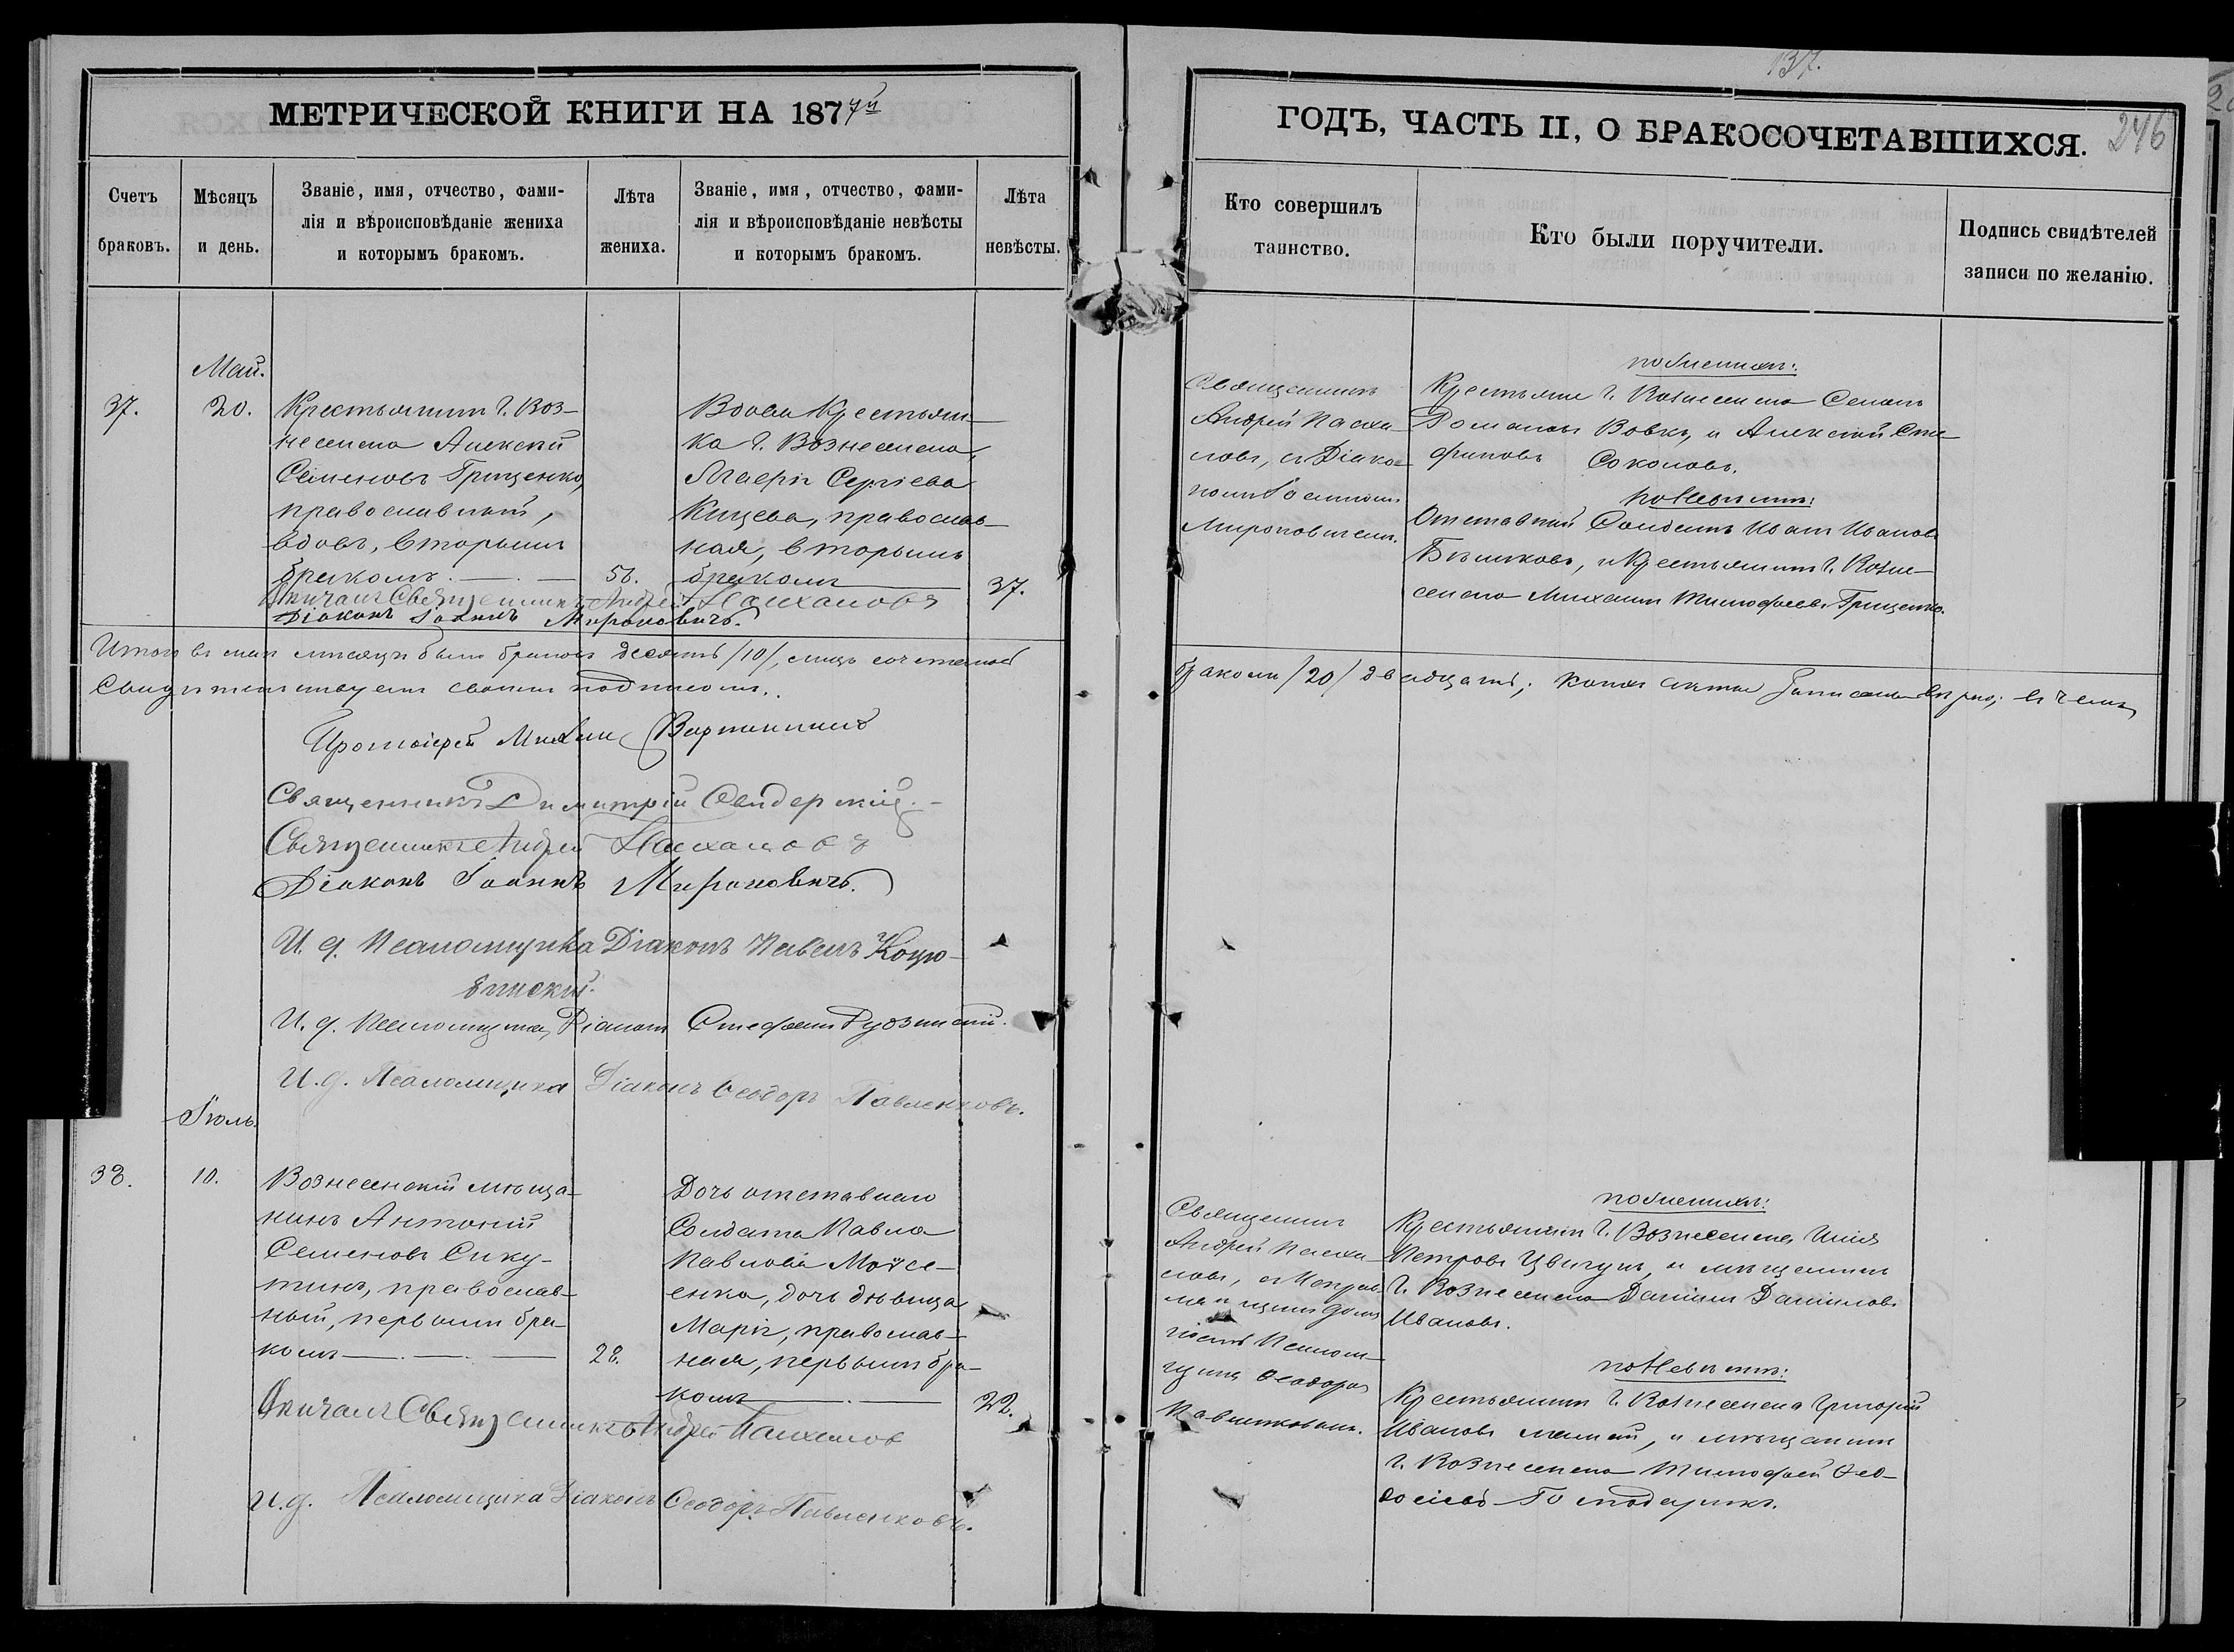 137.
246
МЕТРИЧЕСКОЙ КНИГИ НА 1877й
ГОДЪ, ЧАСТЬ II, О БРАКОСОЧЕТАВШИХСЯ.
Счетъ браковъ.
Мѣсяцъ и день.
Званіе, имя, отчество, фами-
лія и вѣроисповѣданіе жениха
и которымъ бракомъ.
Лѣта жениха.
Званіе, имя, отчество, фами-
лія и вѣроисповѣданіе невѣсты
и которымъ бракомъ.
Лѣта невѣсты.
Кто совершилъ
таинство.
Кто были поручители.
Подпись свидѣтелей
записи по желанію.
Май.
37.
20.
Крестьянинъ г. Воз-
несенска Алексѣй
Семеновъ Грищенко,
православный,
вдовъ, вторымъ
бракомъ
56.
Вдова Крестьян-
ка г. Вознесенска,
Сергіева
Кицева, православ-
ная, вторымъ
бракомъ
37.
Священникъ
Андрей Пасха-
ловъ, съ Діако-
номъ Іоанномъ
Мироновичемъ.
по женихѣ:
Крестьяне г. Вознесенска Семенъ
Романовъ Вовкъ, и Алексѣй Сте-
фановъ Соколовъ.
по Невѣстѣ:
Отставный Солдатъ Иванъ Ивановъ
и Крестьянинъ г. Возне-
сенска Михаилъ Тимофеевъ Грищенко.
Вѣнчалъ Священникъ Андрей Пасхаловъ
Діаконъ Іоаннъ Мироновичъ.
Итого въ маѣ мѣсяцѣ было браковъ десять /10/, лицъ сочетанныхъ
бракомъ /20/ двадцать; копія акта записана вѣрно; въ чемъ
Свидѣтельствуемъ своимъ подписомъ.
Протоіерей
Священникъ Димитрій Сендерскій.
Священникъ Андрей Пасхаловъ
Діаконъ Іоаннъ Мироновичъ.
И. д. Псаломщика Діаконъ Павелъ Коцю-
бинскій.
И. д. Псаломщика, Діаконъ Стефанъ Рудзинскій.
И. д. Псаломщика Діаконъ Ѳеодоръ Павленковъ.
Іюль.
38.
10.
Вознесенскій мѣща-
нинъ Антоній
Семеновъ Сику-
тинъ, православ-
ный, первымъ бра-
комъ
28.
Дочь отставнаго
Солдата Павла
Павлова Мойсе-
енка, дочь дѣвица
Марія, православ-
ная, первымъ бра-
комъ
22.
Священникъ
Андрей Пасха-
ловъ, съ Исправ-
ляющимъ долж-
ность Псалом-
щика Ѳеодоромъ
Павленковымъ.
по женихѣ:
Крестьянинъ г. Вознесенска Илія
Петровъ Цвигунъ, и мѣщанинъ
г. Вознесенска Даніилъ Данииловъ
Ивановъ.
по Невѣстѣ:
Крестьянинъ г. Вознесенска Григорій
Ивановъ и мѣщанинъ
г. Вознесенска Тимофей Ѳео-
досіевъ Господарикъ.
Вѣнчалъ Священникъ Андрей Пасхаловъ
и. д. Псаломщика Діаконъ Ѳеодоръ Павленковъ.